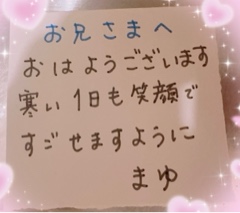 お兄さまへ
おはようございます
寒い1日も笑顔で
すごせますように
まゆ